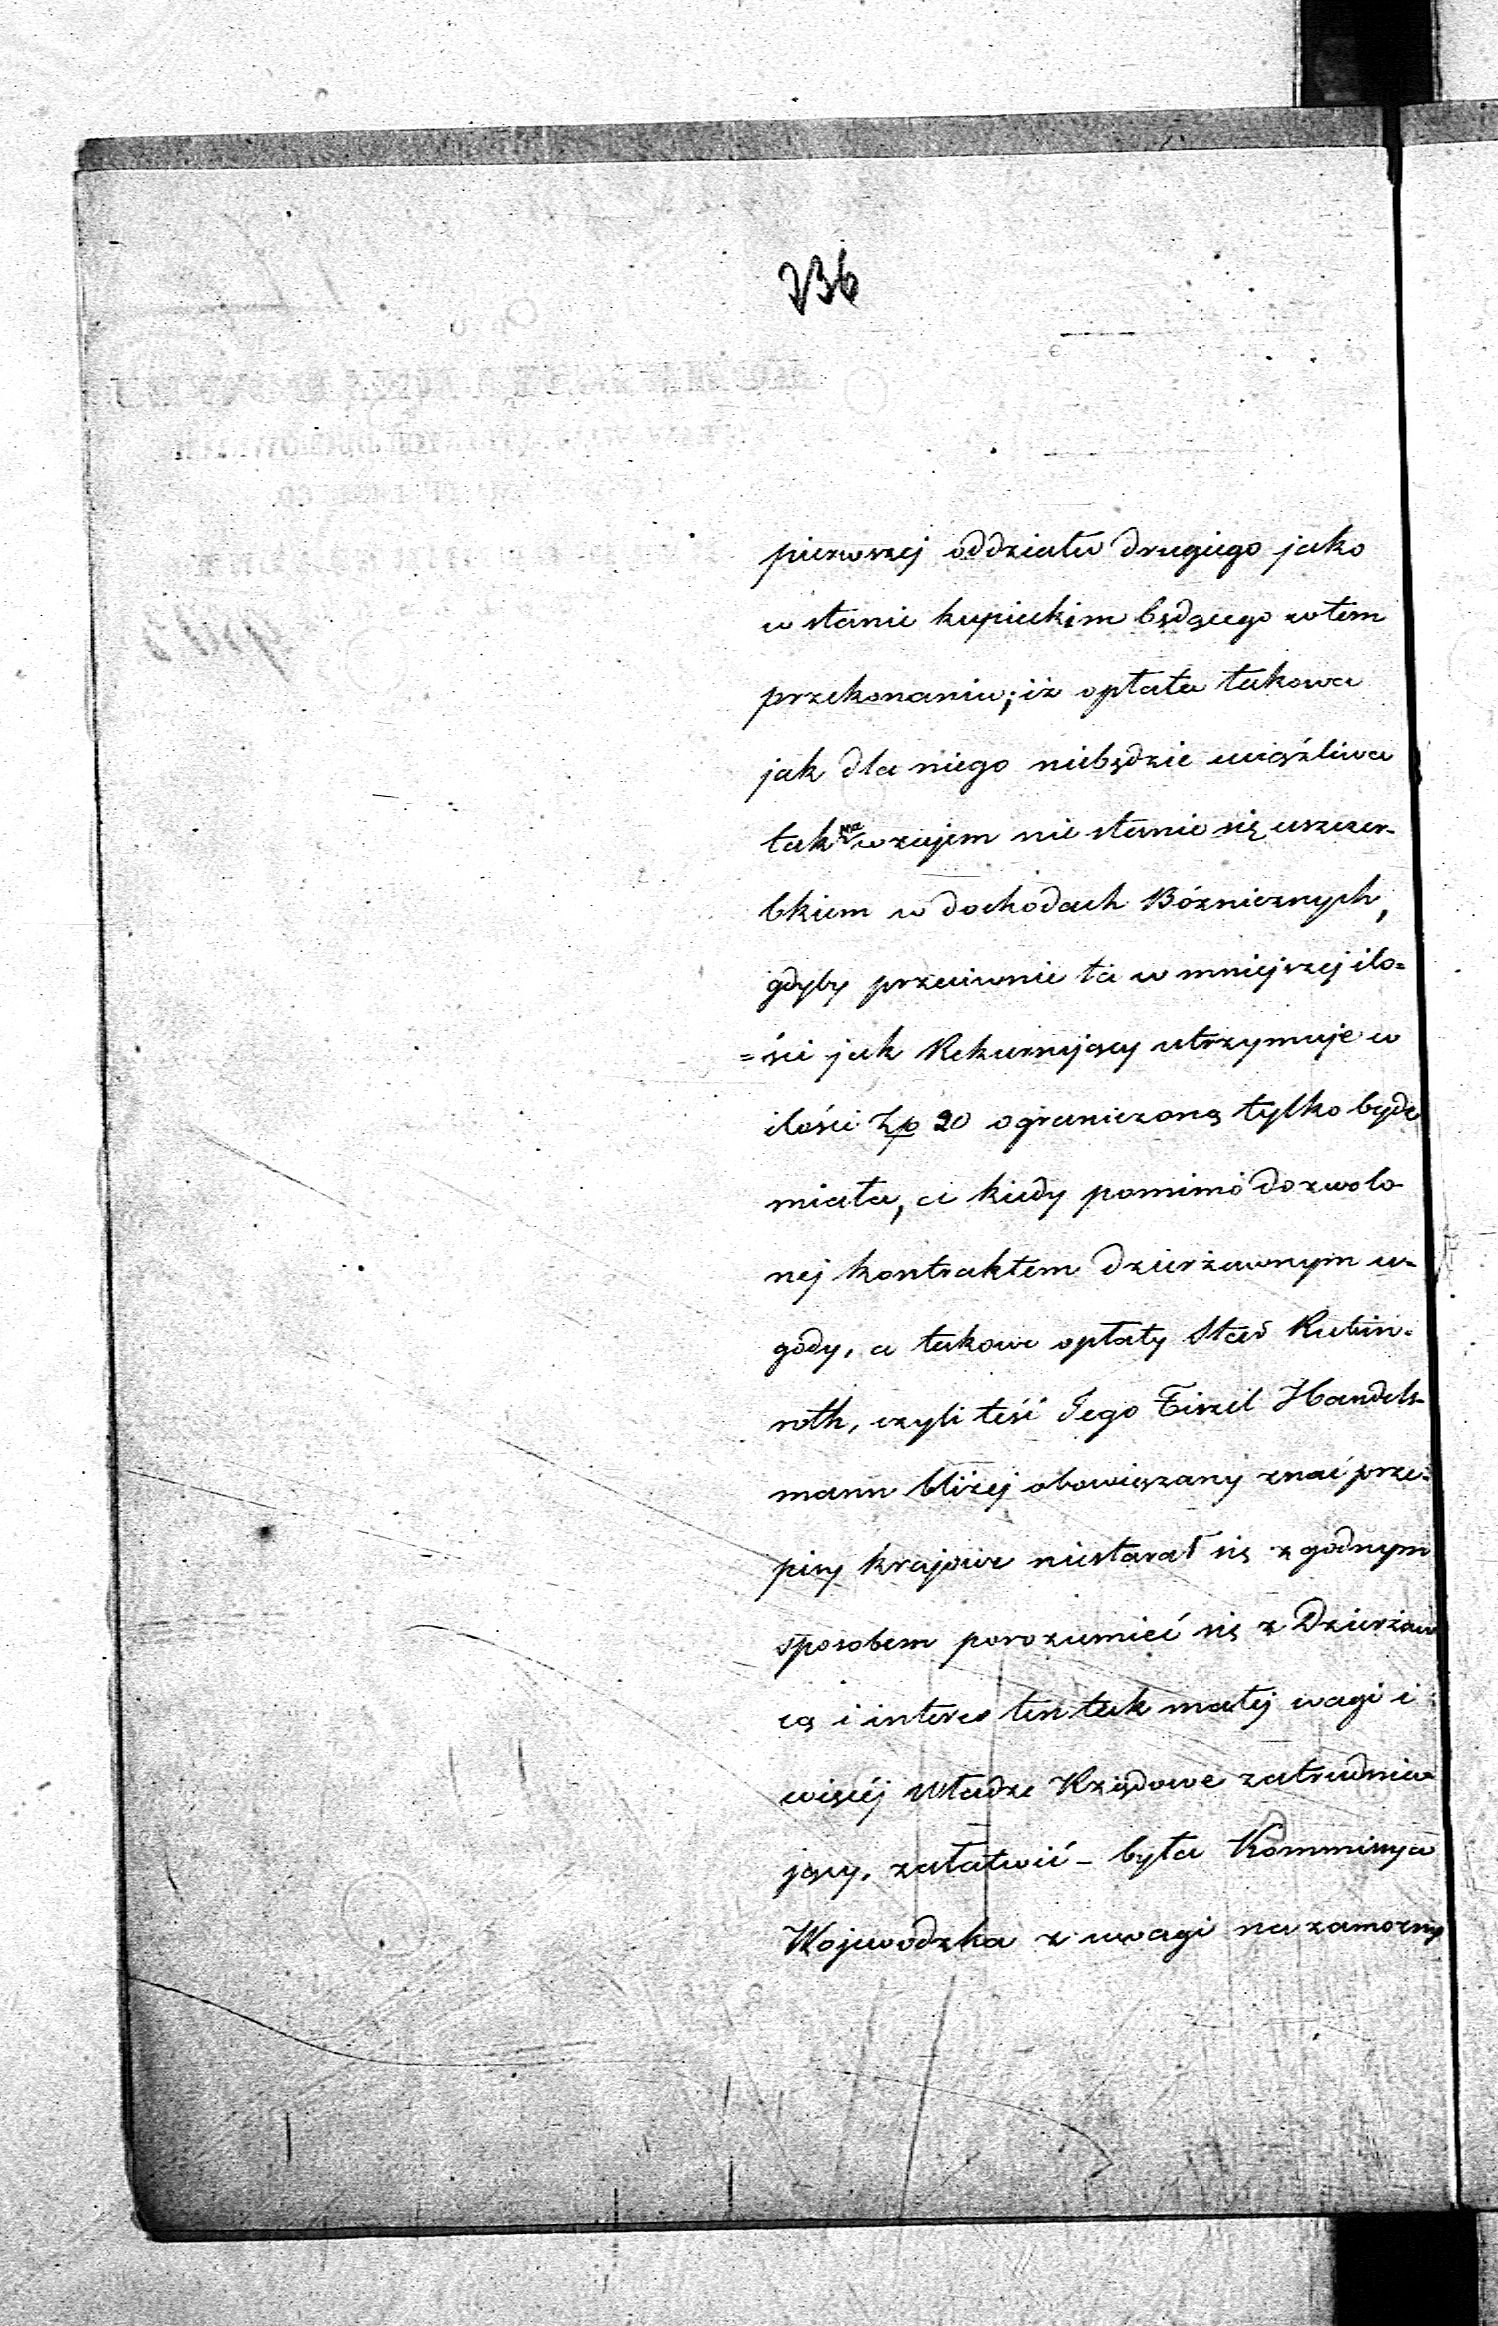 236
pierwszej oddziału drugiego jako
w stanie kupieckim będącego w tem
przekonaniu; iż opłata takowa
jak dla niego niebędzie uciążliwa
tak na wzajem nie stanie się uszczer-
bkiem w dochodach Bóżnicznych,
gdyby przeciwnie ta w mniejszej ilo=
=ści jak Rekurujący utrzymuje w
ilości Zp 20 ograniczoną tylko być
miała, a kiedy pomimo dozwolo
nej kontraktem dzierżawnym u-
gody, a takowe opłaty Staw Rubin-
roth, czyli teść Jego Fiszel Handels-
mann bliżej obowiązany znać prze=
pisy krajowe niestarał się zgodnym
sposobem porozumieć się z Dzierżaw
cą i interes ten tak małej wagi i
więcéj Władze Rządowe zatrudnia
jący, załatwić - była Kommissya
Wojewodzka z uwagi na zamożny